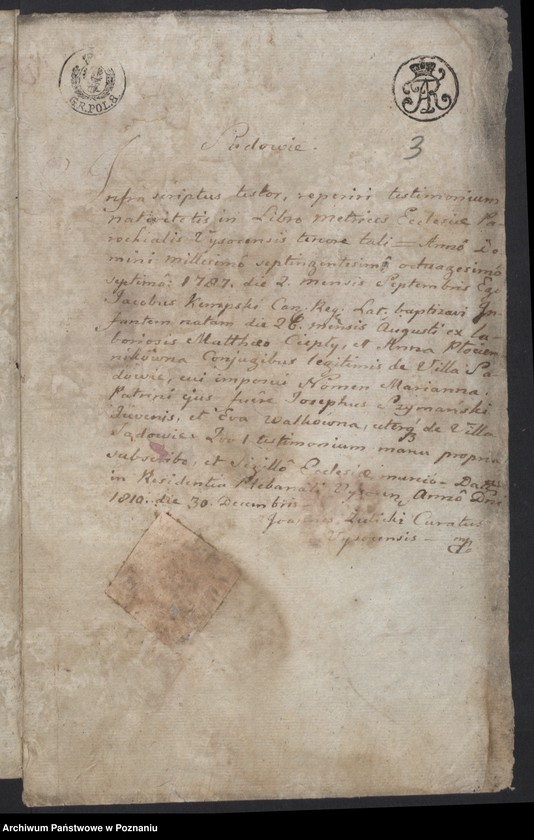 G.R.POL.8.
AR
3
Sadowie.
Infra scriptus testor, reperiri testimonium
nativitatis in Libro metrices Ecclesiæ Pa-
rochialis Vysocensis tenore tali = Annô Do-
mini millesimô septingentesimô octuagesimô
septimô: 1787. die 2. mensis Septembris Ego
Jacobus Kempski Can. Reg. Lat. baptizavi In-
fantem natam die 28. mensis Augusti ex la-
boriosis Matthæo Ciepły, et Anna Płocien-
nikówna Conjugibus legitimis de Villa Sa-
dowie, cui imposui Nomen Marianna.
Patrini ejus fuêre Josephus Szymański
Juvenis, et Eva Walkówna, uterq de Villa
Sadowie. Quod testimonium manu propria
subscribo, et Sigillô Ecclesiæ munio. Dat
in Residentia Plebanali Annô Dni
1810. die 30. Decembris
Joannes Curatus
Vysocensis